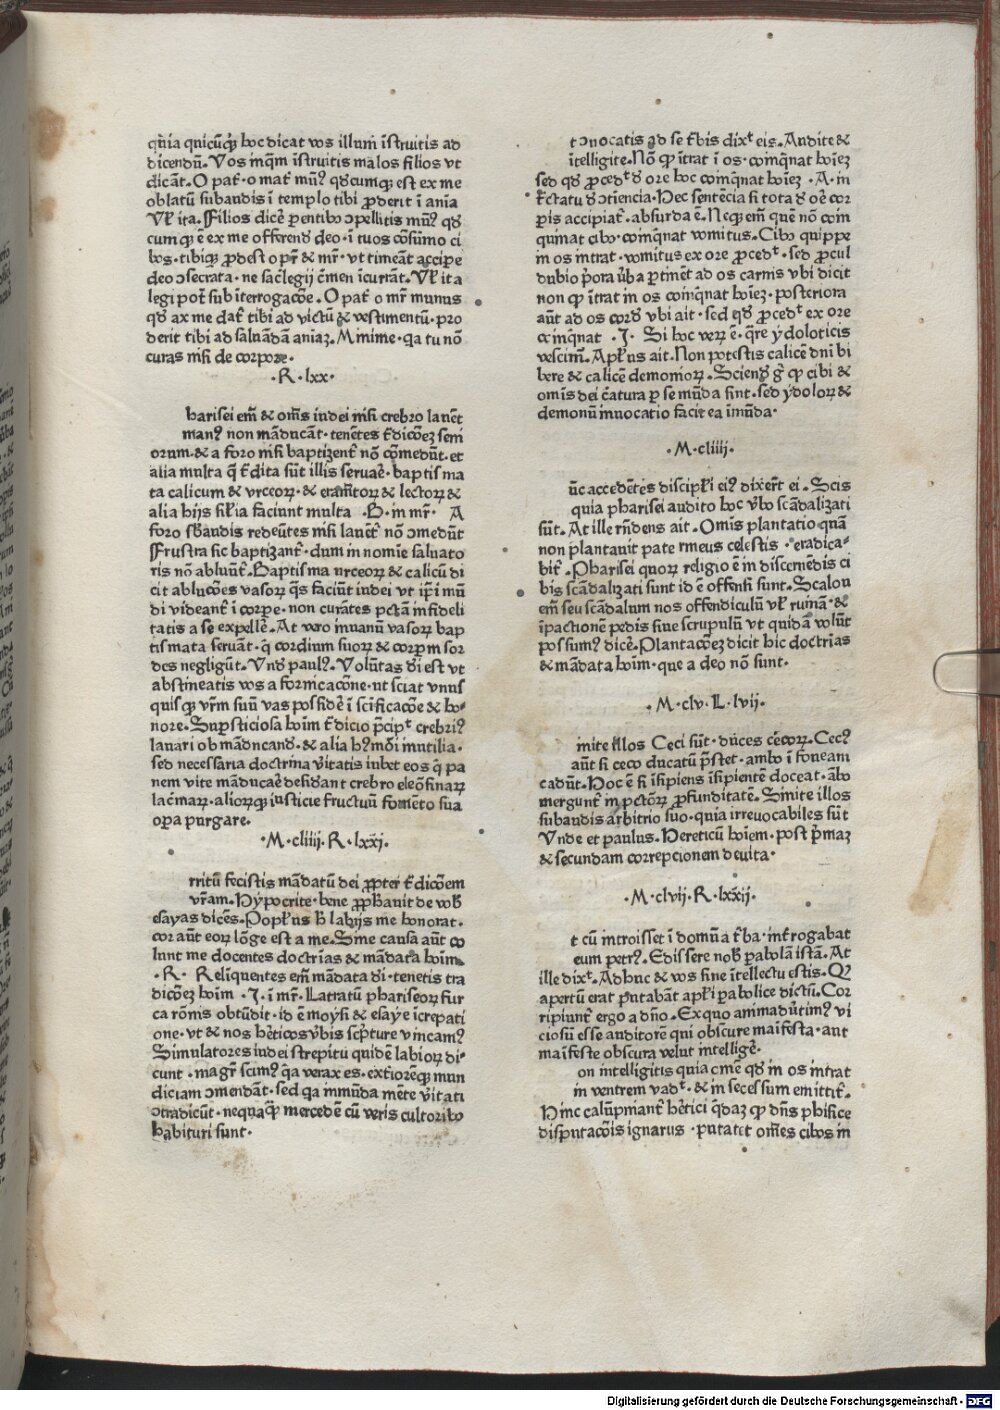 qn̄ia quicūqꝫ hoc dicat vos illum īstruitis ad
dicendū. Vos mq̄m īstruitis malos filios vt
dicāt. O pat̄ · o mat̄ mūꝰ qdcumqꝫ est ex me
oblatū subandis ī templo tibi ꝓderit ī ania
Vl̄ ita. Filios dicē ꝑentibꝫ ɔpellitis mūꝰ qd
cumqꝫ ē ex me offerend deo · ī tuos cōsumo ci
bos · tibiqꝫ ꝓdest o pr̄ & mr̄ · vt timeāt accipe
deo ɔsecrata · ne sac̄legij c̄men īcurrāt. Vl̄ ita
legi pot̄ sub īterrogacōe. O pat̄ o mr̄ munus
qd ax me dat̄ tibi ad victū & vestimentū · pro
derit tibi ad saluādā aniaꝫ. Minime · qa tu nō
curas nisi de corpore.
· R · lxx ·
harisei em̄ & om̄s iudei nisi crebro lauēt
manꝰ non māducāt · tenētes t̄dicōeꝫ seni
orum · & a foro nisi baptizent̄ nō cōmedūt · et
alia multa q̄ t̄dita sūt illis seruaē · baptisma
ta calicum & vrceoꝝ · & eramētoꝝ & lectoꝝ &
alia hijs sil̄ia faciunt multa · B · in mr̄ · A
foro sb̄audis redeūtes nisi lauēt̄ nō ɔmedūt
Frustra sic baptizant̄ · dum in nomīe saluato
ris nō abluūt̄. Baptisma urceoꝝ & calicū di
cit ablucōes vasoꝝ q̄s faciūt iudei vt ip̄i mū
di videant̄ ī corpe · non curātes pctā infideli
tatis a se expellē. At vero inuanū vasoꝝ bap
tismata seruāt · q cordium suoꝝ & corpꝝ sor
des negligūt. Vnd paulꝰ. Volūtas di est vt
abstineatis vos a fornicacōne · ut sciat vnus
quisqꝫ vr̄m suū vas possidē ī sc̄ificacōe & ho-
nore. Supersticiosa hoīm t̄dicio p̄cipᵗ crebriꝰ
lauari ob māducand · & alia hꝰmōi inutilia ·
sed necessaria doctrina v̄itatis iubet eos q̄ pa
nem vite māducaē desidant crebro eleōsinaꝝ
lac̄maꝝ · alioꝝqꝫ iusticie fructuū fomēto sua
oꝑa purgare.
· M · cliiij · R · lxxi ·
rritū fecistis mādatū dei ꝓpter t̄dicōem
vr̄am. Hypocrite · bene ꝓph̄auit de vob̄
esayas dicēs. Popl̄us h̄ labijs me honorat ·
cor aūt eoꝝ lōge est a me. Sine causa aūt co
lunt me docentes doctrīas & mādata hoīm.
· R · Reliquentes em̄ mādata di · tenetis tra
dicōeꝫ hoīm · J · ī mr̄ · Latratū phariseoꝝ fur
ca rōnis obtūdit · id ē moysi & esaye īcrepati
one · vt & nos hēticos v̄bis sc̄pture vincamꝰ
Simulatores iudei strepitu quidē labioꝝ di-
cunt · magr̄ scimꝰ qa verax es · ext̄iorēqꝫ mun
diciam ɔmendāt · sed qa inmūda mēte v̄itati
ɔtradicūt · nequaq̄ꝫ mercedē cū veris cultoribꝰ
habituri sunt ·
t ɔuocatis ad se t̄bis dixᵗ eis. Audite &
ītelligite. Nō qꝫ ītrat ī os · comq̄nat hoīeꝫ
sed qd ꝓcedᵗ d ore hoc comq̄nat hoīeꝫ · A · in
t̄ctatu d ɔtiencia. Hec sentēcia si tota d oē cor
ꝑis accipiat̄ · absurda ē. Necqꝫ em̄ quē nō coin
quinat cibꝰ · comq̄nat vomitus. Cibꝰ quippe
in os intrat · vomitus ex ore ꝓcedᵗ · sed ꝓcul
dubio p̄ora v̄ba ꝑtinēt ad os carnis vbi dicit
non qꝫ ītrat in os comq̄nat hoīeꝫ · posteriora
aūt ad os cord vbi ait · sed qd ꝓcedᵗ ex ore
comq̄nat · J · Si hoc veꝝ ē · q̄re ydoloticis
vescimꝰ. Apl̄us ait. Non potestis calicē dn̄i bi
bere & calicē demonioꝝ. Sciend gͦ qꝫ cibi &
omīs dei c̄atura ꝑ se mūda sint · sed ydoloꝝ &
demonū inuocatio facit ea īmūda ·
· M · cliiij ·
ūc accedētes discipl̄i eiꝰ dixer̄t ei. Scis
quia pharisei audito hoc v̄bo scādalizati
sūt. At ille rn̄dens ait. Omīs plantatio quā
non p̄lantauit pate rmeus celestis · eradica-
bit̄. Pharisei quoꝝ religio ē in discernēdis ci
bis scādalizati sunt id ē offensi sunt. Scalon
em̄ seu scādalum nos offendiculū vl̄ ruinā · &
īpactionē pedis siue scrupulū vt quidā volūt
possumꝰ dicē. Plantacōeꝫ dicit hic doctrīas
& mādata hoīm · que a deo nō sunt.
· M · clv · L · lvij ·
inite illos Ceci sūt · duces cēcoꝝ. Cecꝰ
aūt si ceco ducatū p̄stet · ambo ī foueam
cadūt. Hoc ē si īsipiens īsipientē doceat · ābo
mergunt̄ in pctōꝝ ꝓfunditatē. Sinite illos
subandis arbitrio suo · quia irreuocabiles sūt
Vnde et paulus. Hereticū hoīem · post p̄maꝫ
& secundam correpcionem deuita ·
· M · clvij · R · lxxij ·
t cū introisset ī domū a t̄ba · int̄rogabat
eum petrꝰ. Edissere nob̄ ꝑabolā istā. At
ille dixᵗ. Adhuc & vos sine ītellectu estis. Qͦ
apertū erat putabāt apl̄i ꝑabolice dictū. Cor
ripiunt̄ ergo a dn̄o. Ex quo animadu̅timꝰ vi
ciosū esse auditorē qui obscure maīfesta · aut
maīfeste obscura velut intelligē ·
on intelligitis quia cm̄e qd in os intrat
in ventrem vadᵗ · & in secessum emittit̄.
Hinc calūpniant̄ hētici q̄daꝫ qꝫ dn̄s phisice
disputacōis ignarus · putatet om̄es cibos in
Digitalisierung gefördert durch die Deutsche Forschungsgemeinschaft - DFG